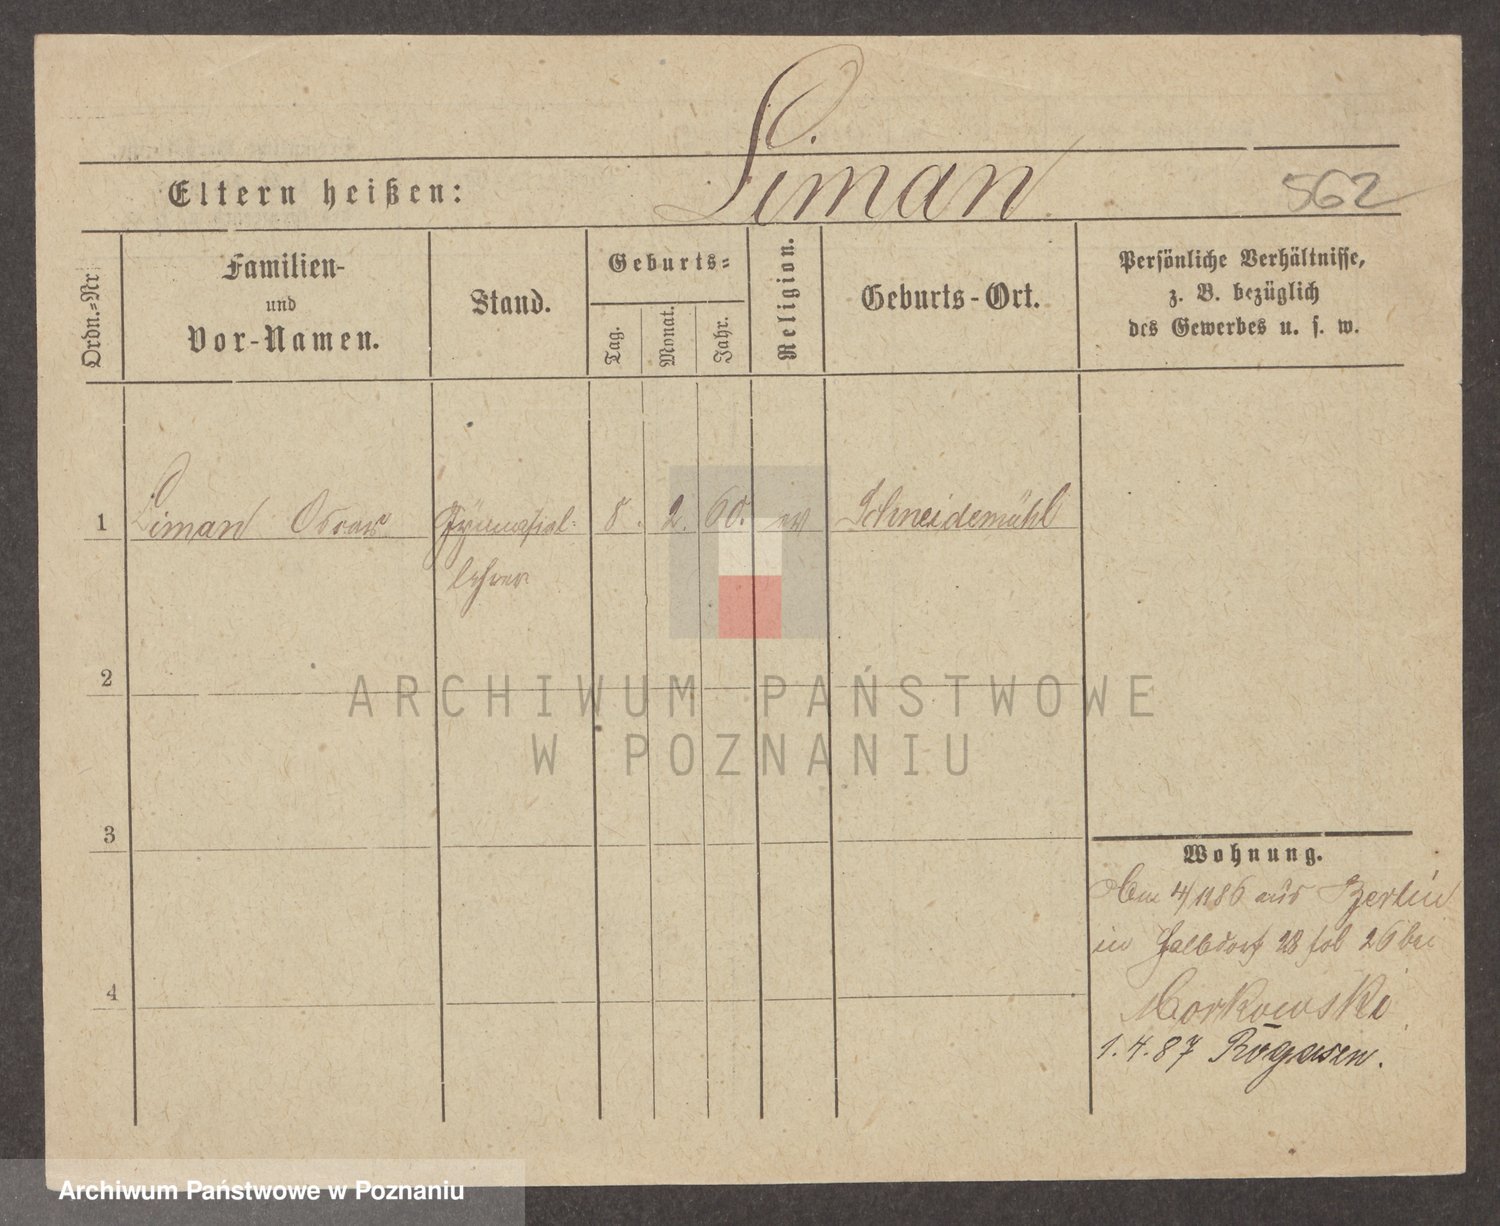 Liman
Eltern heißen:
562
Ordn.-Nr.
Familien-
und
Vor-Namen.
Stand.
Geburts-
Tag.
Monat.
Jahr.
Religion.
Geburts-Ort.
Persönliche Verhältnisse,
z. B. bezüglich
des Gewerbes u. s. w.
1 Liman Oscar Gymnasial- 8. 2. 60. ev Schneidemühl
lehrer
2
3
4
Wohnung.
4/1186 aus Berlin
in Halbdorf 28 26 bei
Morkowski
1.4.87 Rogasen.
ARCHIWUM PAŃSTWOWE
W POZNANIU
Archiwum Państwowe w Poznaniu